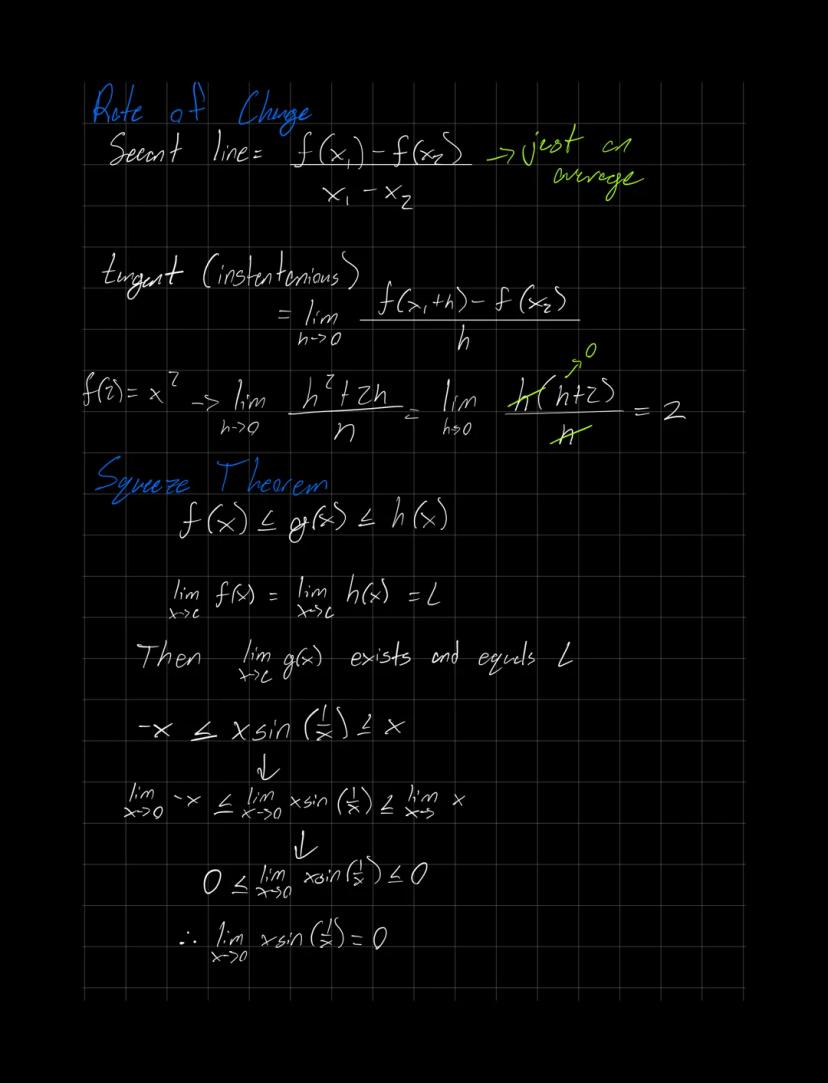 Rate of Change
Secant line = f(x₁) - f(x₂) / x₁ - x₂ → just an average
tangent (instentanious)
= lim h→0 f(x₁+h) - f(x₂) / h
f(2) = x² → lim h→0 h²+2h / n = lim h→0 h(h+2) / n = 2
0
Squeeze Theorem
f(x) ≤ g(x) ≤ h(x)
lim x→c f(x) = lim x→c h(x) = L
Then lim x→c g(x) exists and equals L
-x ≤ x sin (1/x) ≤ x
↓
lim x→0 -x ≤ lim x→0 x sin (1/x) ≤ lim x→ x
↓
0 ≤ lim x→0 x sin (1/x) ≤ 0
∴ lim x→0 x sin (1/x) = 0